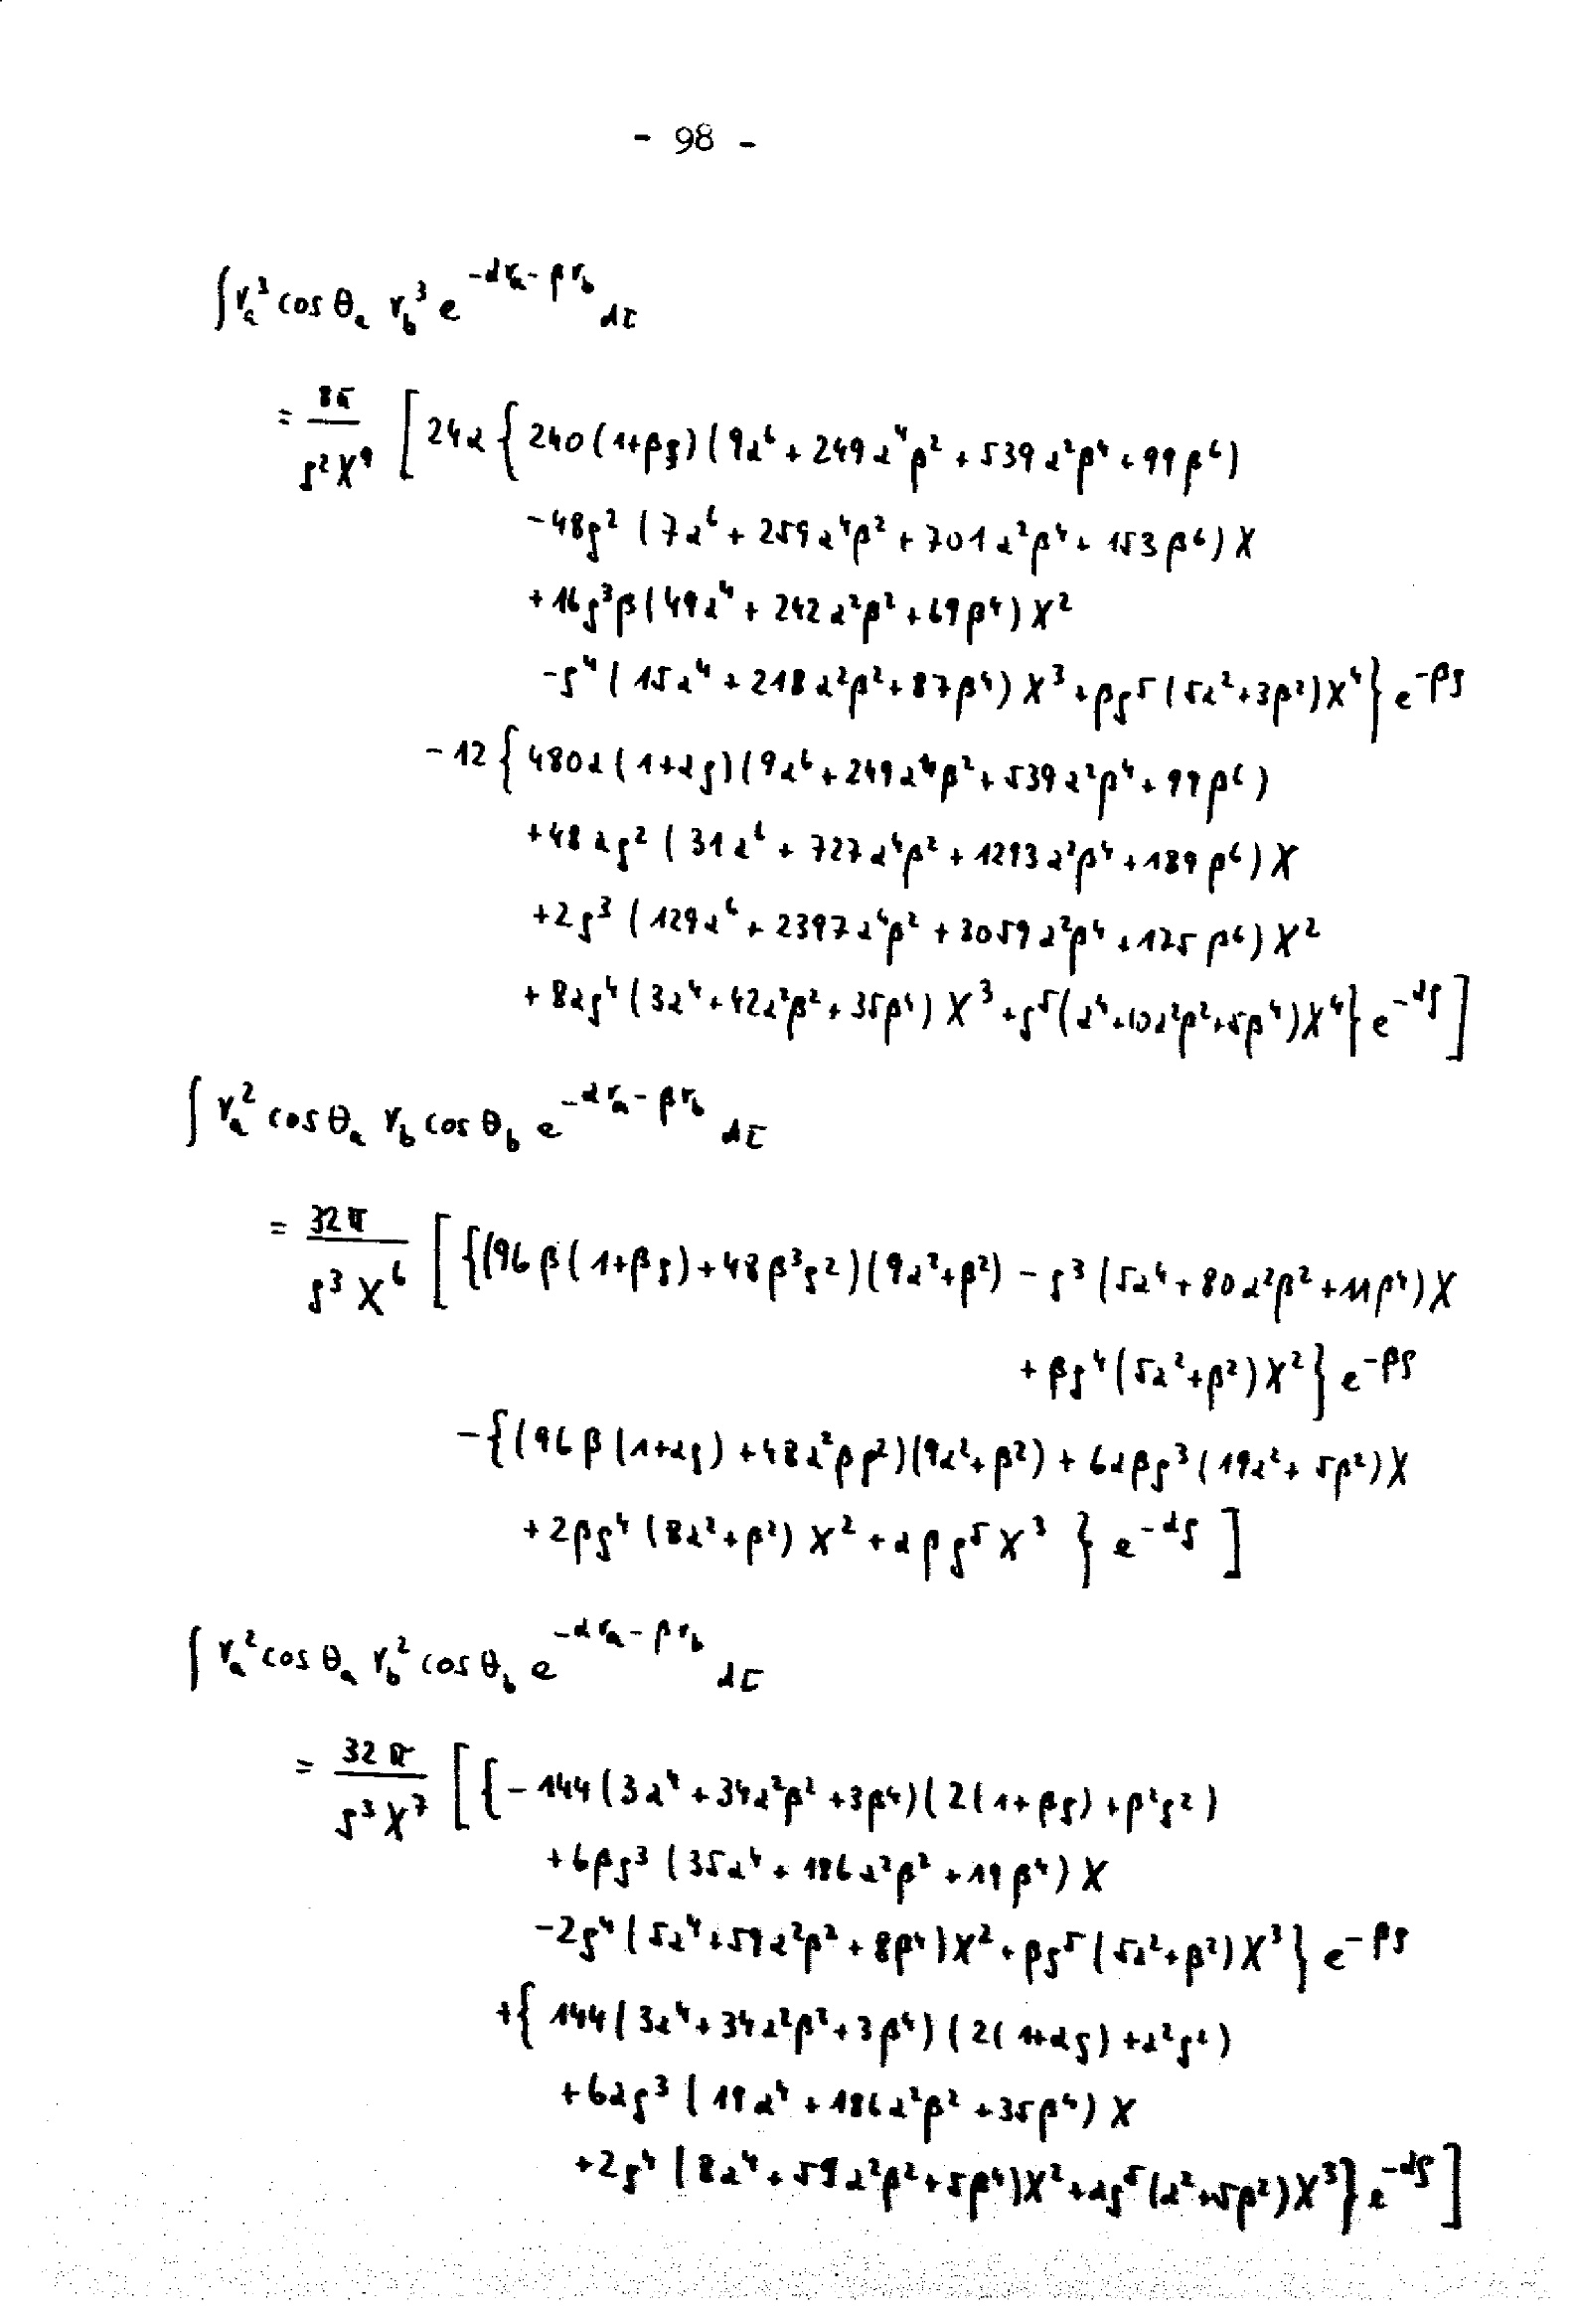 - 98 -
∫ r_a^3 cos θ_a r_b^3 e^{-αr_a - βr_b} dτ
= \frac{8π}{ρ^2 X^9} [ 24α { 240(1+βρ)(9α^6 + 249α^4β^2 + 539α^2β^4 + 99β^6)
-48ρ^2 (7α^6 + 259α^4β^2 + 701α^2β^4 + 153β^6) X
+16ρ^3β(49α^4 + 242α^2β^2 + 69β^4) X^2
-ρ^4 (15α^4 + 218α^2β^2 + 87β^4) X^3 + βρ^5 (5α^2+3β^2) X^4 } e^{-βρ}
-12 { 480α(1+αρ)(9α^6 + 249α^4β^2 + 539α^2β^4 + 99β^6)
+48αρ^2 (31α^6 + 727α^4β^2 + 1293α^2β^4 + 189β^6) X
+2ρ^3 (129α^6 + 2397α^4β^2 + 3059α^2β^4 + 175β^6) X^2
+8αρ^4 (3α^4 + 42α^2β^2 + 35β^4) X^3 + ρ^5(α^4+10α^2β^2+5β^4)X^4 } e^{-αρ} ]
∫ r_a^2 cos θ_a r_b cos θ_b e^{-αr_a - βr_b} dτ
= \frac{32π}{ρ^3 X^6} [ {(96β(1+βρ)+48β^3ρ^2)(9α^2+β^2) - ρ^3 (5α^4 + 80α^2β^2 + 11β^4) X
+ βρ^4 (5α^2+β^2) X^2 } e^{-βρ}
-{(96β(1+αρ) + 48α^2βρ^2)(9α^2+β^2) + 6αβρ^3 (19α^2 + 5β^2) X
+2βρ^4 (8α^2+β^2) X^2 + αβρ^5 X^3 } e^{-αρ} ]
∫ r_a^2 cos θ_a r_b^2 cos θ_b e^{-αr_a - βr_b} dτ
= \frac{32π}{ρ^3 X^7} [ { -144(3α^4 + 34α^2β^2 + 3β^4)(2(1+βρ) + β^2ρ^2)
+6βρ^3 (35α^4 + 186α^2β^2 + 19β^4) X
-2ρ^4 (5α^4+59α^2β^2 + 8β^4) X^2 + βρ^5 (5α^2+β^2) X^3 } e^{-βρ}
+{ 144(3α^4 + 34α^2β^2 + 3β^4)(2(1+αρ) + α^2ρ^2)
+6αρ^3 (19α^4 + 186α^2β^2 + 35β^4) X
+2ρ^4 (8α^4 + 59α^2β^2 + 5β^4) X^2 + αρ^5 (α^2+5β^2) X^3 } e^{-αρ} ]